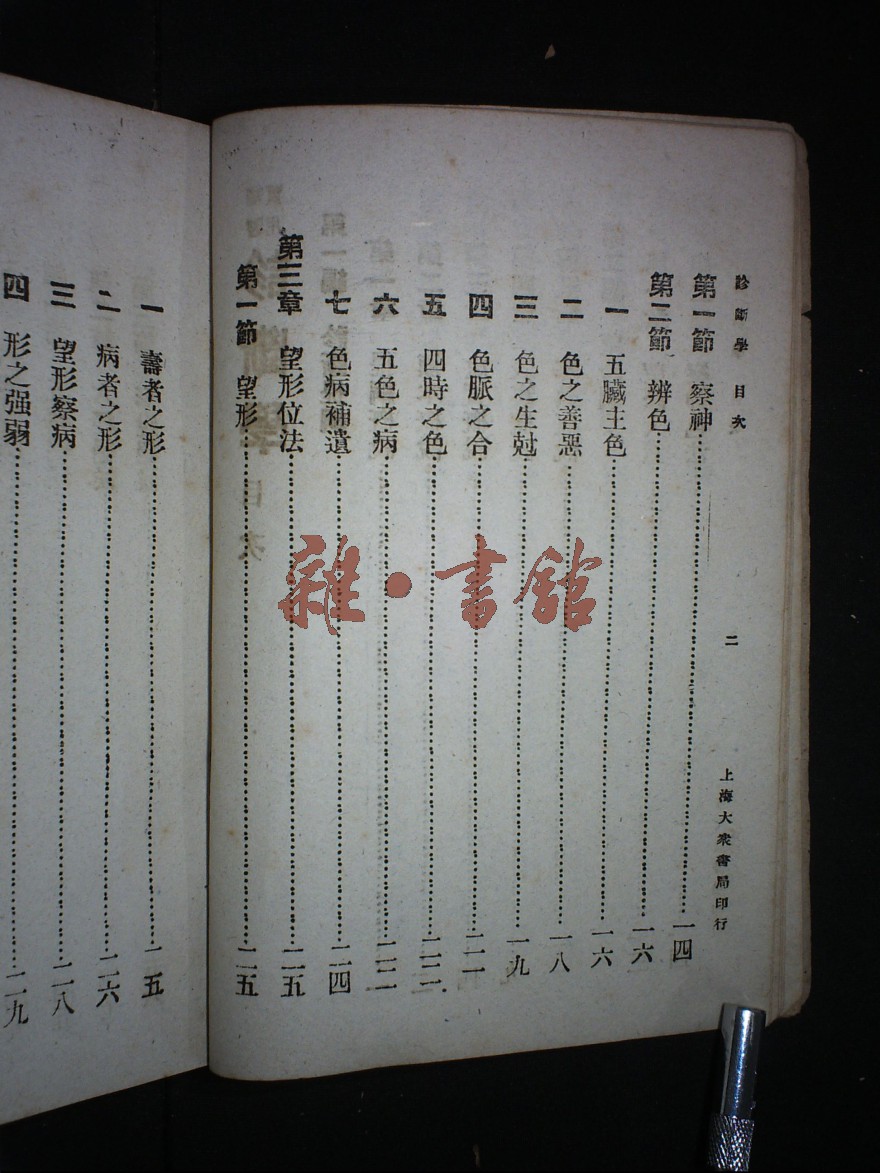 診斷學 目次 二 上海大衆書局印行
第一節 察神……一四
第二節 辨色……一六
一 五臟主色……一六
二 色之善惡……一八
三 色之生尅……一九
四 色脈之合……二一
五 四時之色……二二
六 五色之病……二二
七 色病補遺……二四
第三章 望形位法……二五
第一節 望形……二五
一 壽者之形……二五
二 病者之形……二六
三 望形察病……二八
四 形之强弱……二九
雜·書館